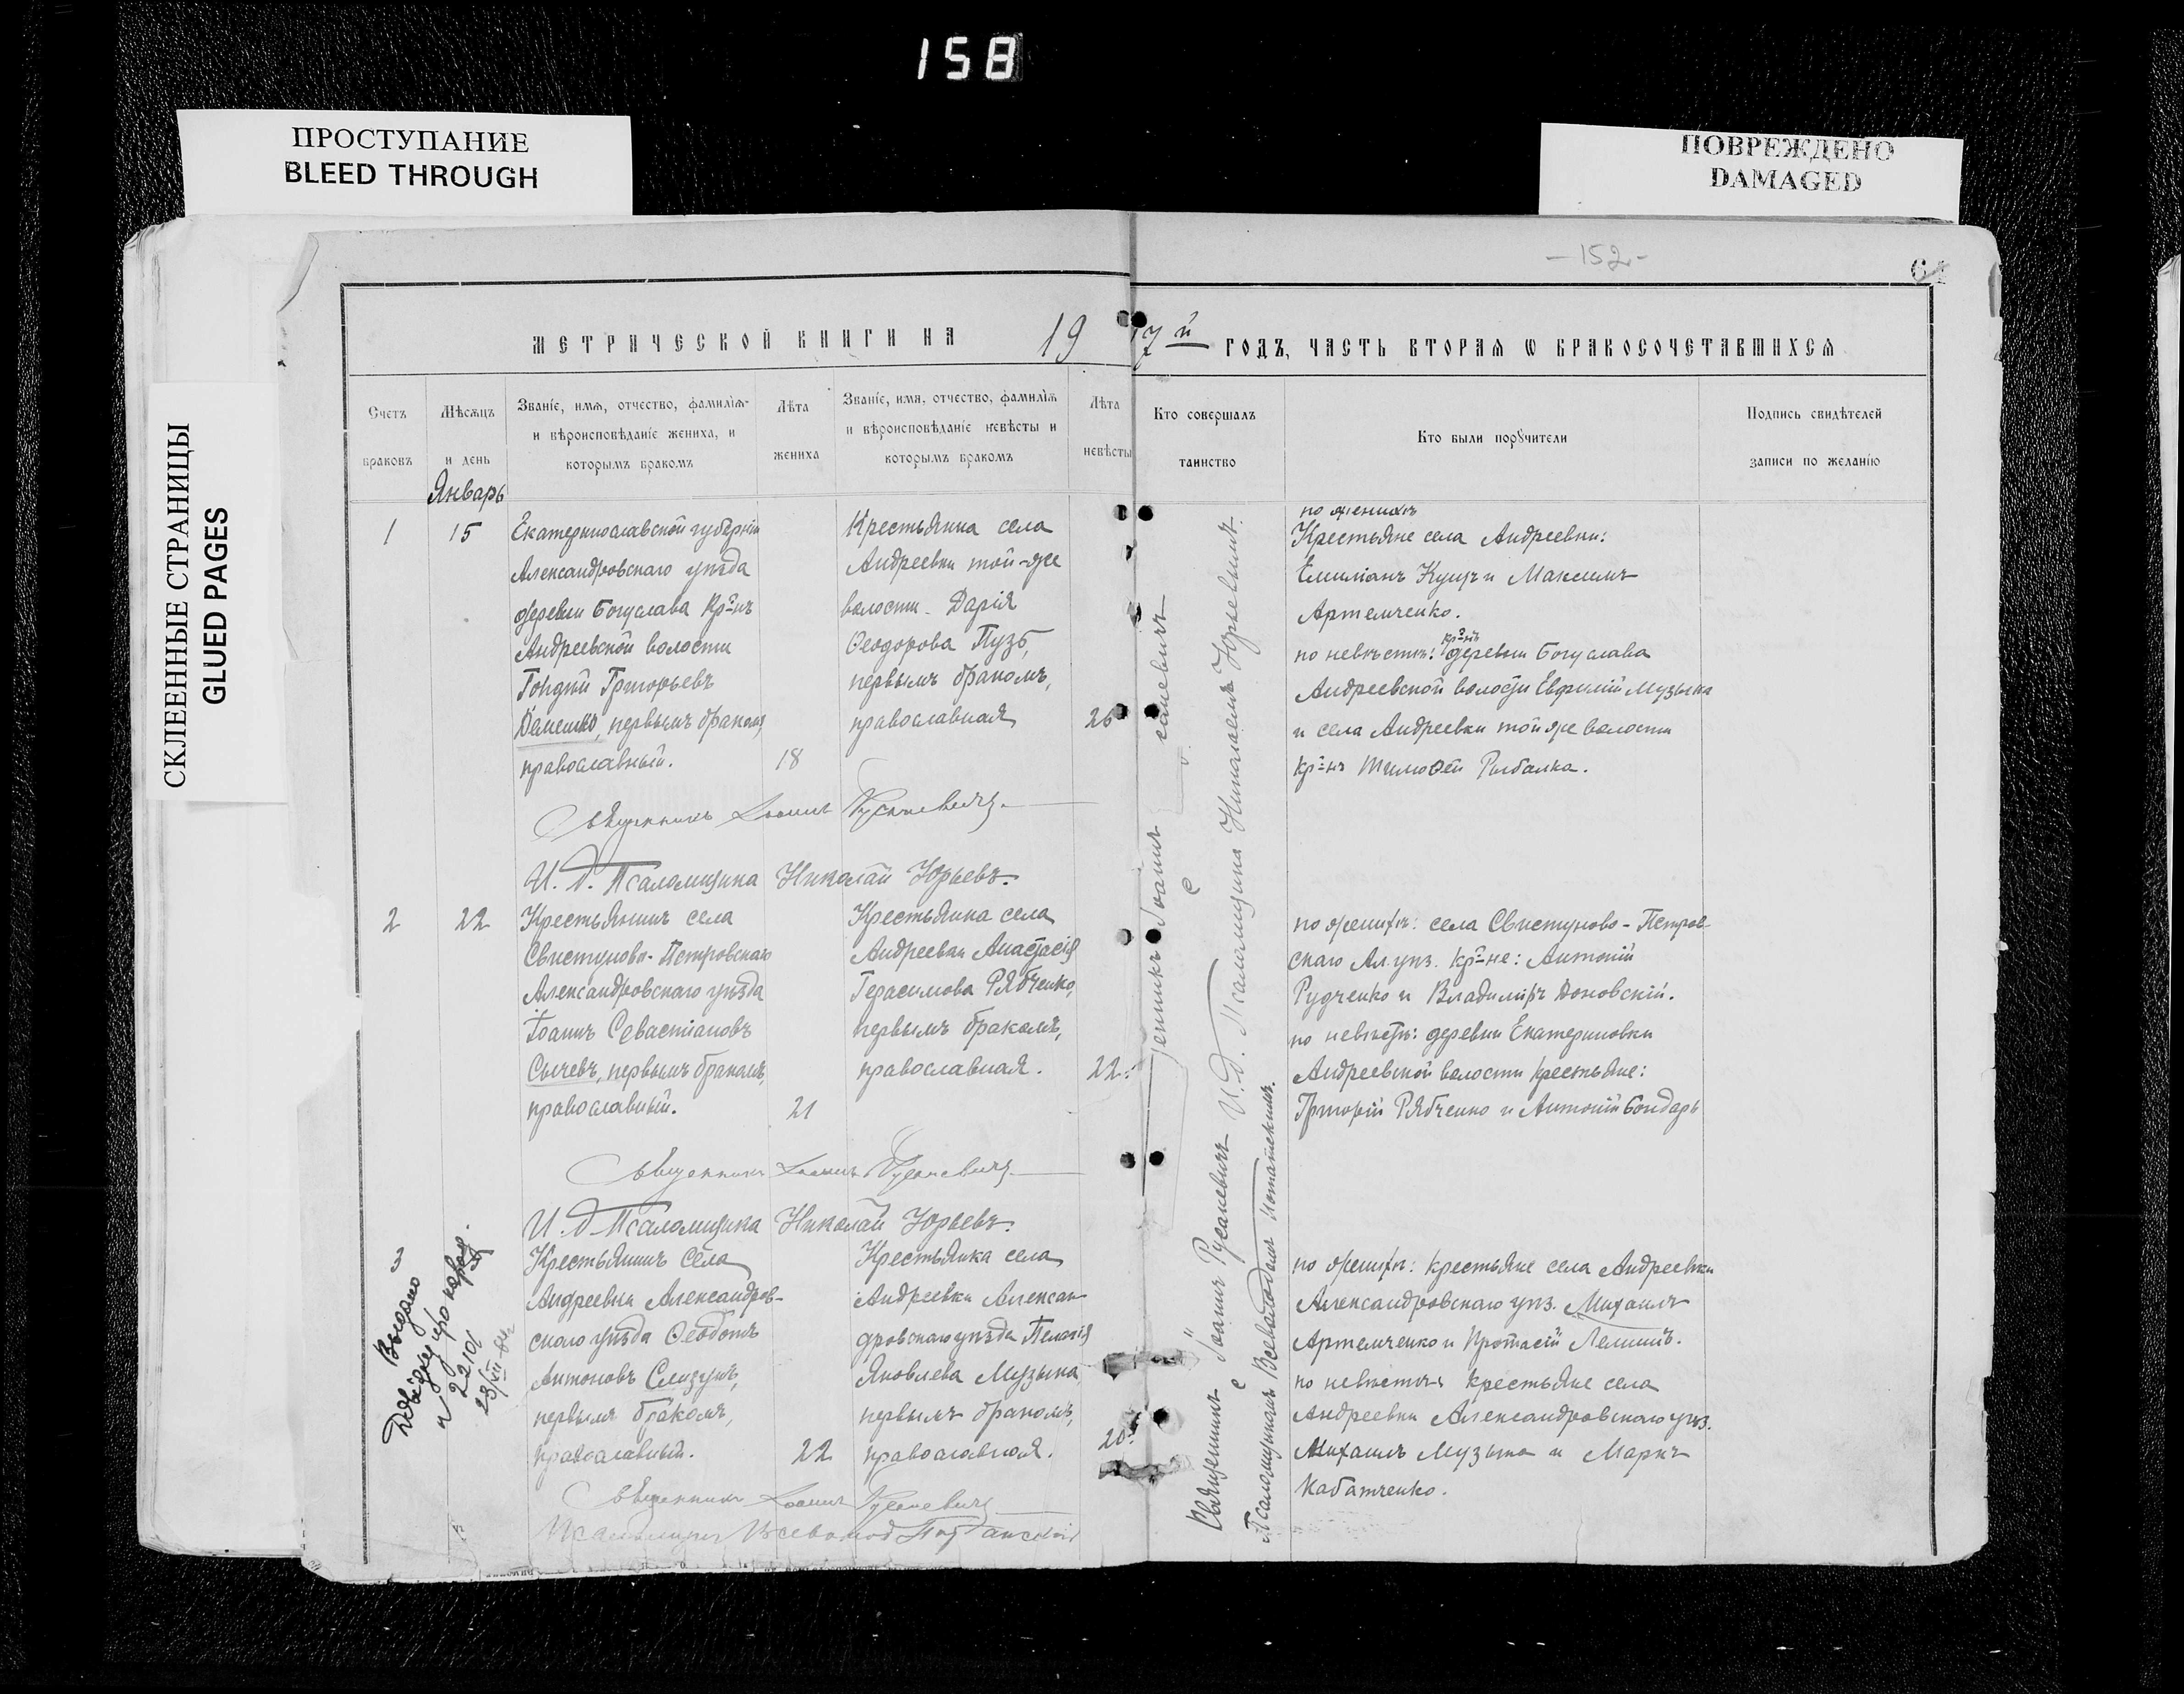 158
ПРОСТУПАНИЕ
BLEED THROUGH
ПОВРЕЖДЕНО
DAMAGED
СКЛЕЕННЫЕ СТРАНИЦЫ
GLUED PAGES
-152-
МЕТРИЧЕСКОЙ КНИГИ НА 1917й ГОДЪ, ЧАСТЬ ВТОРАЯ Ѡ БРАКОСОЧЕТАВШИХСЯ
Счетъ
браковъ
Мѣсяцъ
и день
Званіе, имя, отчество, фамилія
и вѣроисповѣданіе жениха, и
которымъ бракомъ
Лѣта
жениха
Званіе, имя, отчество, фамилія
и вѣроисповѣданіе невѣсты и
которымъ бракомъ
Лѣта
невѣсты
Кто совершалъ
таинство
Кто были порꙋчители
Подпись свидѣтелей
записи по желанію
Январь
1
15
Екатеринославской губерніи
Александровскаго уѣзда
деревни Богуслава кр-нъ
Андреевской волости
Григорьевъ
первымъ бракомъ,
православный.
18
Крестьянка села
Андреевки той-же
волости Дарія
Ѳеодорова Пузь,
первымъ бракомъ,
православная
26
по женихѣ
Крестьяне села Андреевки:
Емиліанъ Куцъ и Максимъ
Артемченко.
по невѣстѣ: кр-нъ деревни Богуслава
Андреевской волости Евфимій Музыка
и села Андреевки той же волости
кр-нъ Тимоѳей Рыбалка.
Священникъ Іоаннъ Русаневичъ
И. д. Псаломщика Николай Юрьевъ.
2
22
Крестьянинъ села
Свистунова-Петровскаго
Александровскаго уѣзда
Іоаннъ Севастіановъ
Сычевъ, первымъ бракомъ,
православный.
21
Крестьянка села
Андреевки Анастасія
Герасимова Рябченко,
первымъ бракомъ,
православная.
22
по женихѣ: села Свистуново-Петров-
скаго Ал. уѣз. кр-не: Антоній
Рудченко и Владиміръ Доновскій.
по невѣстѣ: деревни Екатериновки
Андреевской волости крестьяне:
Григорій Рябченко и Антоній Бондарь
Священникъ Іоаннъ Русаневичъ
И. д. Псаломщика Николай Юрьевъ.
3
Крестьянинъ села
Андреевки Александров-
скаго уѣзда Ѳеодотъ
Антоновъ Слизунъ,
первымъ бракомъ,
православный.
22
Крестьянка села
Андреевки Алексан
дровскаго уѣзда Пелагія
Яковлева Музыка
первымъ бракомъ,
православная.
20
по женихѣ: крестьяне села Андреевки
Александровскаго уѣз. Михаилъ
Артемченко и Протасій Лемишъ.
по невѣстѣ: крестьяне села
Андреевки Александровскаго уѣз.
Михаилъ Музыка и Маркъ
Кабатченко.
Священникъ Іоаннъ Русаневичъ
Псаломщикъ Всеволод
Видано
Довідку про народ.
2210
23/VII
Священникъ Іоаннъ Русаневичъ И. Д. Псаломщика Николаемъ Юрьевымъ.
Псаломщикомъ Всеволодомъ